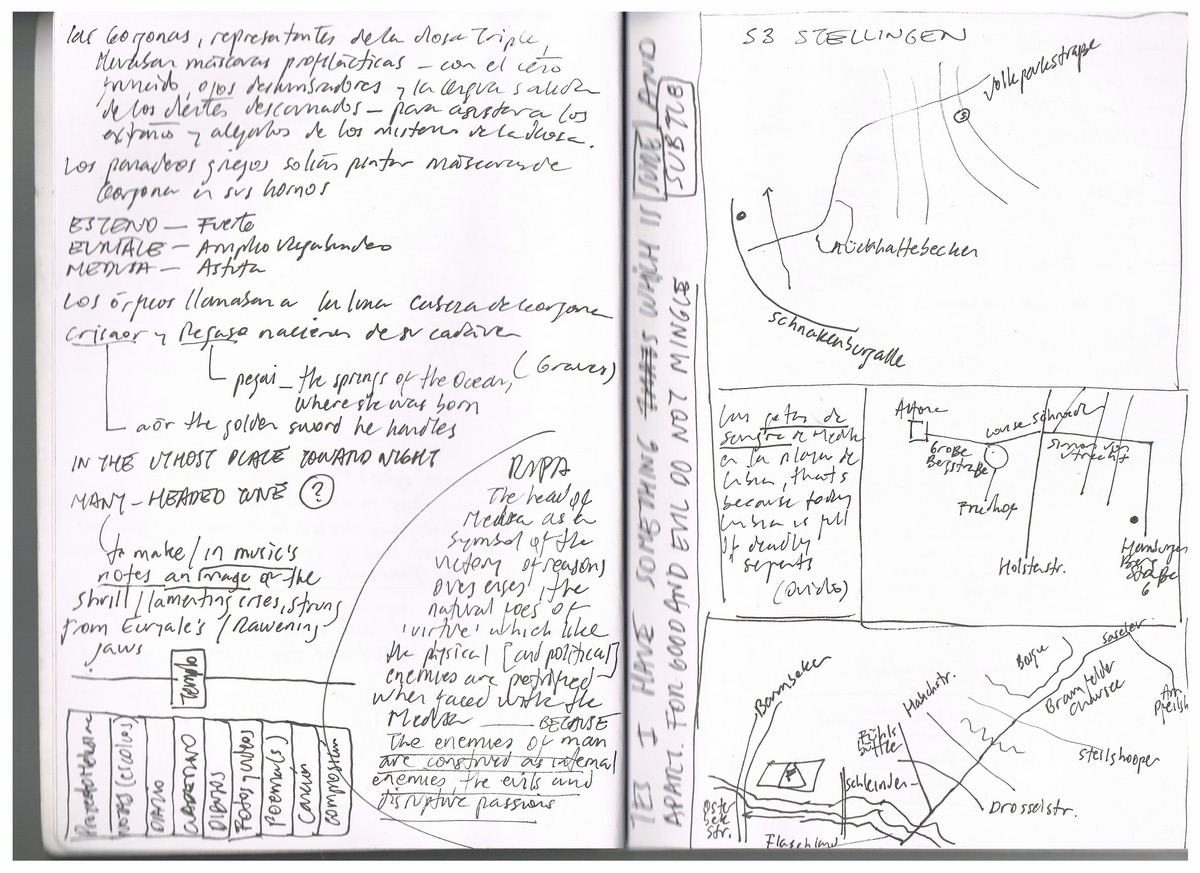 las Gorgonas, representantes de la diosa Triple,
llevaban máscaras profilácticas – con el ceño
fruncido, ojos deslumbradores y la lengua salida
de los dientes descarnados – para asustar a los
extraños y alejarlos de los misterios de la diosa.
Los panaderos griegos solían pintar máscaras de
Gorgona en sus hornos
ESTENO – Fuerte
EURIALE – Amplio vagabundeo
MEDUSA – Astuta
Los órficos llamaban a la luna cabeza de Gorgona
Crisaor y Pegaso nacieron de su cadáver
(Graves)
pegai – the springs of the Ocean,
where she was born
aor the golden sword he handles
IN THE UTMOST PLACE TOWARD NIGHT
MANY-HEADED TUNE ?
to make / in music's
notes an image of the
shrill / lamenting cries, strung
from Euryale's / Ravening
jaws
Templo
notas (críticas)
DIARIO
CUADERNO
DIBUJOS
Fotos y videos
Poema(s)
Canción
composition
RIPA
The head of
Medusa as a
symbol of the
victory of reasons
over enses, the
natural foes of
'virtue' which like
the physical [and political]
enemies are petrified
when faced with the
Medusa —— BECAUSE
The enemies of man
are construed as internal
enemies, the evils and
disruptive passions
YES I HAVE SOMETHING WHICH IS SURE AND
SUBTLE
APART. FOR GOOD AND EVIL DO NOT MINGLE
S3 STELLINGEN
Volkparkstraße
S
Rückhaltebecken
Schnakenburgalle
Las gotas de
sangre de Medusa
en la playa de
Libia, that's
because today
Libia is full
of deadly
serpents
(Ovidio)
Altona
Louise Schroeder
Große
Bergstraße
Simon von
Utrecht
Friedhof
Holstenstr.
Hamburger
Berg
Straße
6
Barmbeker
Hufnerstr.
Fuhls
büttler
schleiden-
Oster
bek
str.
Flaschland
Drosselstr.
Steilshooper
Bramfelder
Chaussee
Saseler
Am
Pfeilsh